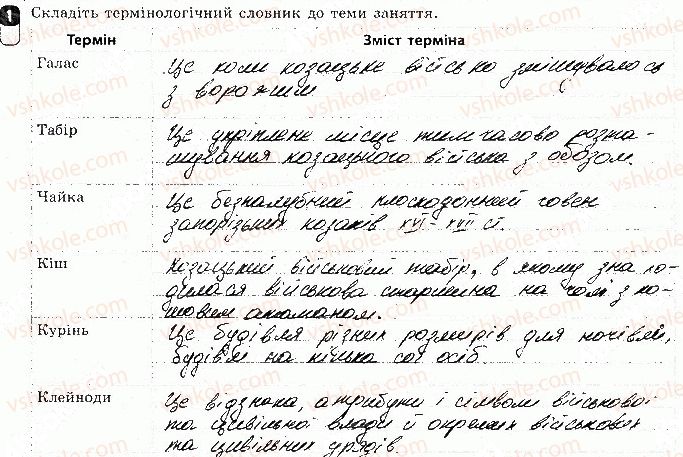 1 Складіть термінологічний словник до теми заняття.
Термін Зміст терміна
Галас Це коли козацьке військо змішувалось
з ворожим
Табір Це укріплене місце тимчасово розта-
шування козацького війська з обозом.
Чайка Це безпалубний плоскодонний човен
запорізьких козаків XVI - XVII ст.
Кіш Козацький військовий табір, в якому знахо-
дилася військова старшина на чолі з ко-
шовим атаманом.
Курінь Це будівля різних розмірів для ночівлі,
будівлі на кілька сот осіб.
Клейноди Це відзнака, атрибути і символи військової
та цивільної влади й окремих військових
та цивільних урядів.
vshkole.com